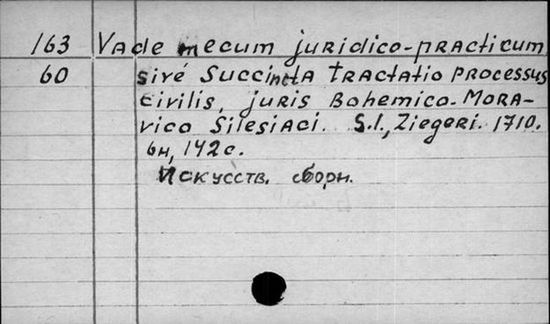 163 Vade mecum juridico-practicum
60 sivé Succincta Tractatio processus
civilis, juris Bohemico-Mora-
vico Silesiaci. S.l., Ziegeri. 1710.
6н, 142 с.
Искусств. сборн.